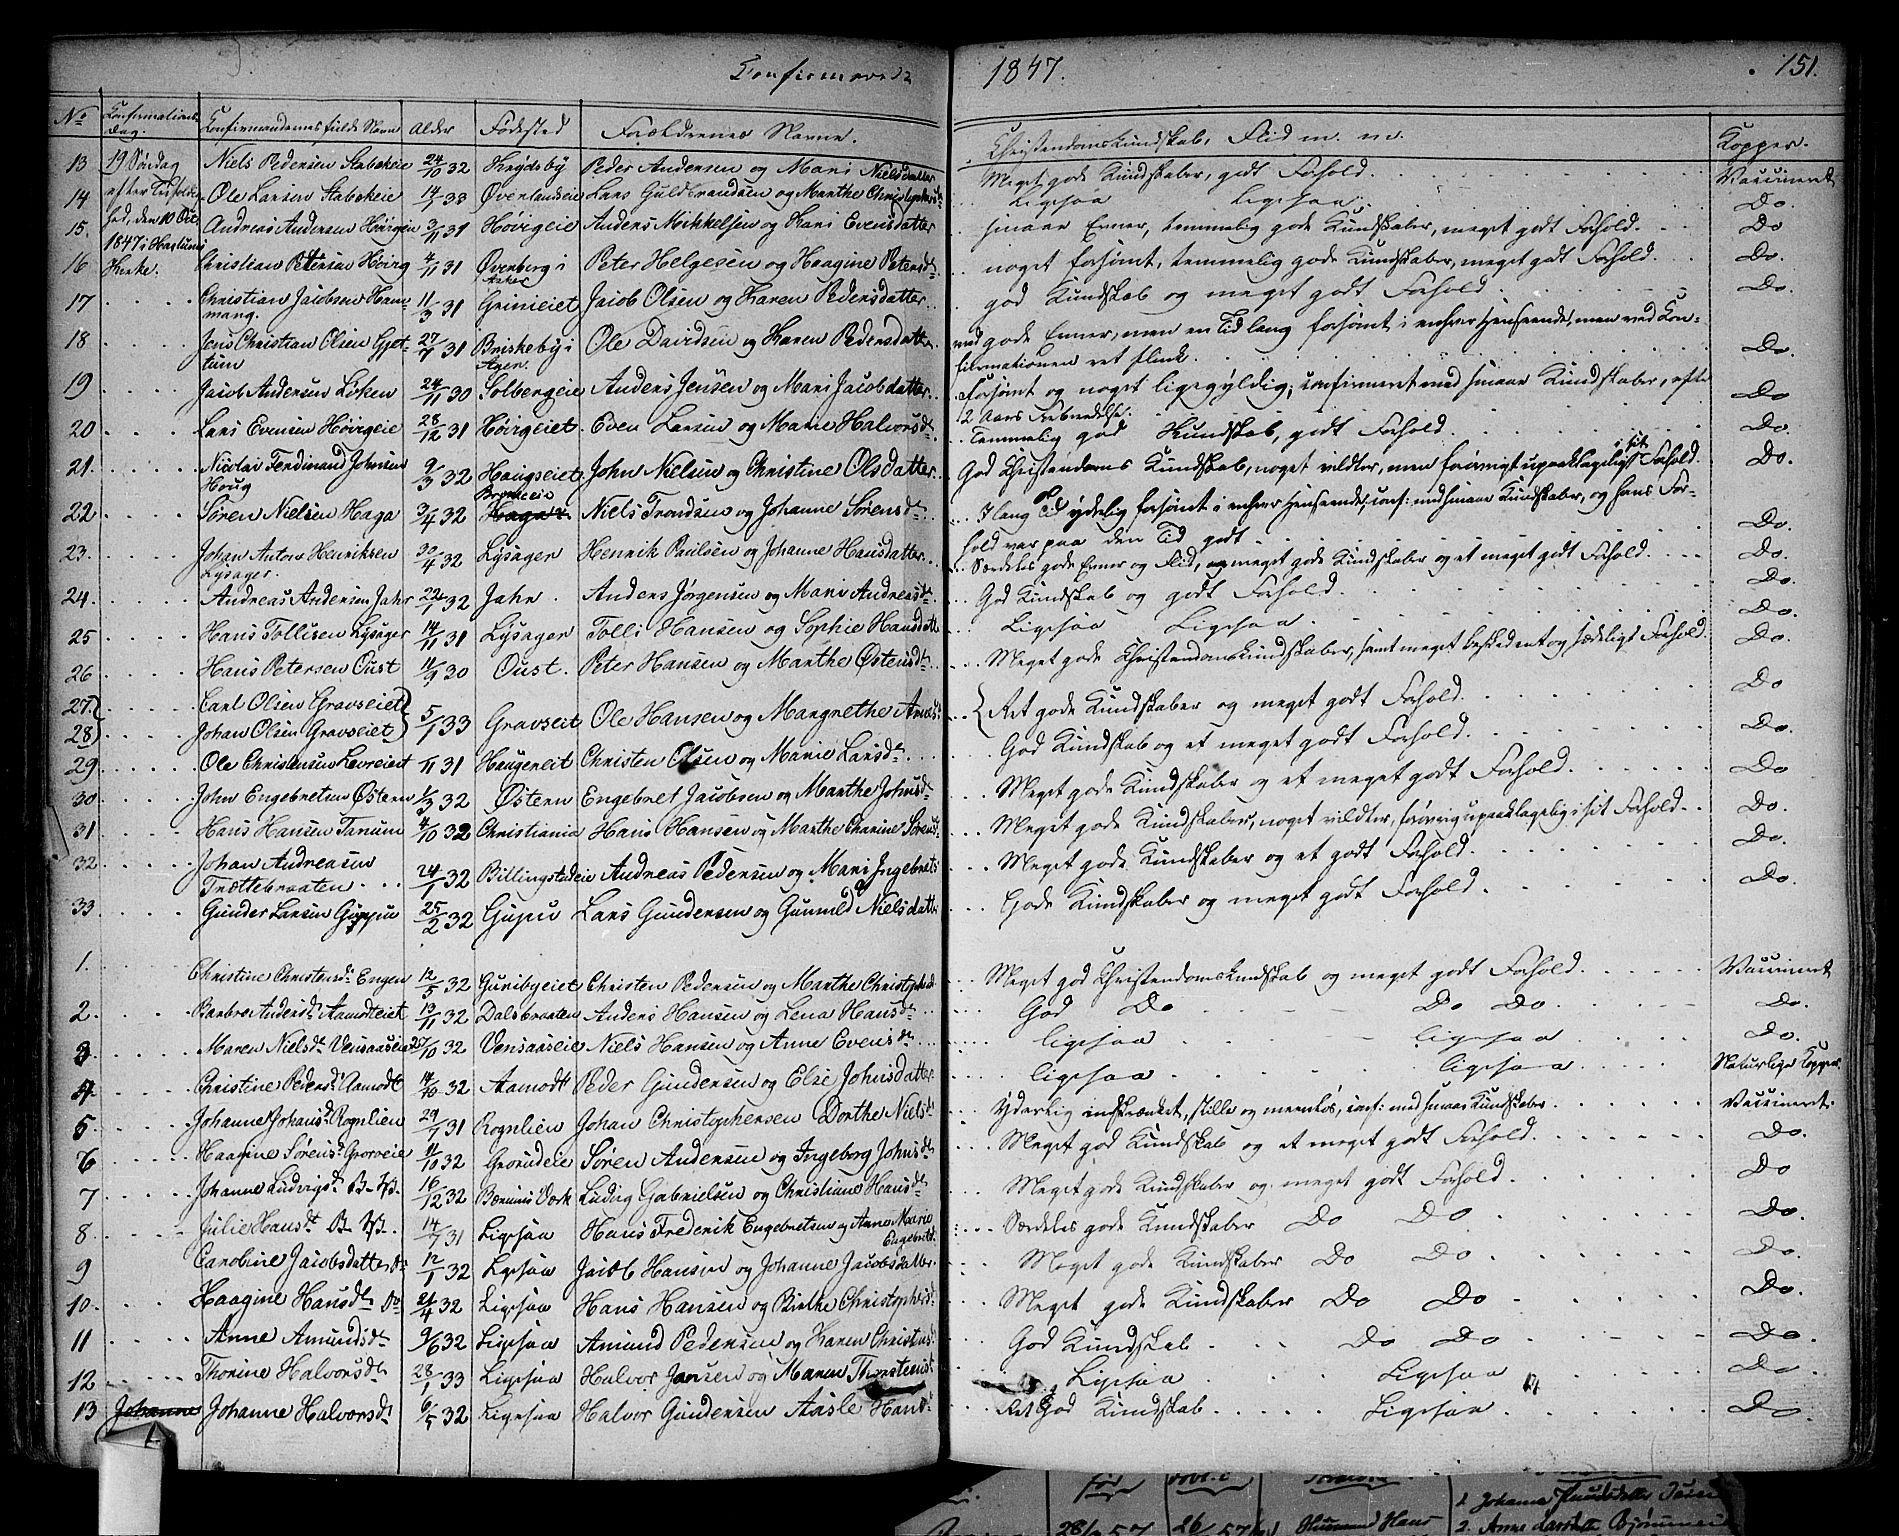 Confirmerede 1847. 151.
No Confirmations Dag. Confirmandernes fulde Navn Alder Fødested Forældrenes Navne. Christendomskundskab, Flid m. m. Kopper.
13 19 Søndag Niels Pedersen Stabekeie 24/10 32 Peder Andersen og Mari Nielsdatter Meget gode Kundskaber, godt Forhold. Vaccineret
14 Ole Larsen Stabekeie 14/7 33 Øverlandseie Lars Guldbrandsen og Marthe Ligesaa Ligesaa. Do.
15. den 10 Oct Andreas Andersen Høvigeie 3/11 31 Høvigeie Anders Mikkelsen og Kari Evensdatter smaae Evner, temmelig gode Kundskaber, meget godt Forhold. Do
16 1847 i Haslums Kirke. Christian Petersen Høvig 4/11 31 Øvenberg i Asker Peter Helgesen og Haagine Petersdtr noget forsømt, temmelig gode Kundskaber, meget godt Forhold. Do.
17 Christian Jacobsen Hammang. 11/3 31 Grinieiet Jacob Olsen og Karen Pedersdatter god Kundskab og meget godt Forhold. Do.
18 Jens Christian Olsen Gjettum 27/7 31 Briskeby i Ager. Ole Davidsen og Karen Pedersdatter med gode Evner, men en Tid lang forsømt i enhver Henseende, men ved Confirmationen ret flink. Do.
19 Jacob Andersen Løken 24/11 30 Solbergeie Anders Jensen og Mari Jacobsdatter forsømt og noget ligegyldig; confirmeret med smaae Kundskaber, efter 2 Aars Forberedelse. Do
20 Lars Evensen Høvigeie 28/12 31 Høvigeiet. Even Larsen og Marie Halvorsdtr Temmelig god Kundskab, godt Forhold. Do.
21. Nicolai Ferdinand Johnsen Houg 9/3 32 Haugseiet John Nielsen og Christine Olsdatter God Christendoms Kundskab, noget vildter, men forøvrigt upaaklageligt i sit Forhold. Do.
22 Søren Nielsen Haga 3/4 32 Niels Trondsen og Johanne Sørensdtr I lang Tid yderlig forsømt i enhver Henseende, conf: med smaae Kundskaber, og hans Forhold var paa den Tid godt. Do.
23. Johan Anton Henriksen Lysager. 30/4 32 Lysager Henrik Paulsen og Johanne Hansdatter Særdeles gode Evner og Flid, meget gode Kundskaber og et meget godt Forhold. Do.
24. Andreas Andersen Jahr 22/1 32 Jahr. Anders Jørgensen og Mari Andreasdtr God Kundskab og godt Forhold. Do.
25 Hans Tollisen Lysager 14/11 31 Lysager Tolli Hansen og Sophie Hansdatter Ligesaa Ligesaa. Do.
26 Hans Petersen Oust 30 Oust. Peter Hansen og Marthe Østensdtr Meget gode Christendomskundskaber, samt meget beskedent og sædeligt Forhold. Do.
27. Carl Olsen Gravseiet 5/1 33 Gravseiet Ole Hansen og Margrethe Ret gode Kundskaber og meget godt Forhold. Do
28 Johan Olsen Gravseiet Do.
29 Ole Christensen 31 Haugeneiet Christen Olsen og Marie Larsdtr God Kundskab og et meget godt Forhold. Do
30 John Engebretsen Østern 1/3 32 Østern Engebret Jacobsen og Marthe Johnsdtr Meget gode Kundskaber og et meget godt Forhold. Do.
31 Hans Hansen Tanum 4/10 32 Christiania Hans Hansen og Marthe Chatrine Sørensdtr Meget gode Kundskaber, noget vildter, forøvrigt upaaklagelig i sit Forhold. Do.
32 Johan Andreasen Trættebraaten 24/1 32 Billingstadeie Andreas Pedersen og Mari Ingebretsd Meget gode Kundskaber og et godt Forhold. Do.
33 Gunder Larsen Gupu 25/2 32 Gupu Lars Gundersen og Gunild Nielsdatter Gode Kundskaber og meget godt Forhold. Do.
1. Christine Christensdtr Engen 12/5 32 Gunibyeiet Christen Pedersen og Marthe Meget god Christendomskundskab og meget godt Forhold. Vaccineret
2. Barbro Andersdtr Aamodteiet 13/11 32 Dalsbraaten Anders Hansen og Lena Hansdtr God Do Do Do Do.
3 Maren Nielsdtr Vensaaseie 25/10 32 Vensaaseie Niels Hansen og Anne Evensdtr ligesaa ligesaa Do.
4. Christine Pedersdtr Aamodt 14/10 32 Aamodt Peder Gundersen og Else Johnsdatter ligesaa ligesaa Naturlige Kopper.
5. Johanne Johansdtr Rognlien 29/7 31 Rognlien Johan Christophersen Dorthe Nielsdtr Yderlig indskrænket, stille og meenløs, conf: med smaae Kundskaber. Vaccineret.
6 Haagine Sørensdtr 11/10 32 Søren Andersen og Ingeborg Johnsdtr Meget god Kundskab og et meget godt Forhold. Do.
7 Johanne Ludvigsdtr B. V. 16/12 32 Bærums Værk Ludvig Gabrielsen og Christiane Hansdtr Meget gode Kundskaber og meget godt Forhold. Do
8 Julie Hansdtr B. V. 14/7 31 Ligesaa Hans Frederik Engebretsen og Anne Marie Engebretsd. Særdeles gode Kundskaber Do Do Do.
9 Caroline Jacobsdatter Do 12/1 32 Ligesaa Jacob Hansen og Johanne Jacobsdatter Meget gode Kundskaber Do Do Do.
10. Haagine Hansdtr Do 21/4 32 Ligesaa Hans Hansen og Birthe Christophersd. Meget gode Kundskaber Do Do Do.
11 Anne Amundsdtr 9/6 32 Ligesaa Amund Pedersen og Karen God Kundskab Do Do Do.
12 Thorine Halvorsdtr 28/1 33 Ligesaa Halvor Jansen og Maren Thorstensd. Ligesaa Ligesaa Do.
13 Johanne Johanne Halvorsdtr 6/5 32 Ligesaa Halvor Gundersen Aasle Hansd. Ret God Kundskab Ligesaa Do.
28/ 57 26/ 57 Husmand Hans 1. Johanne Knudsdatter
2. Anne Larsdatter